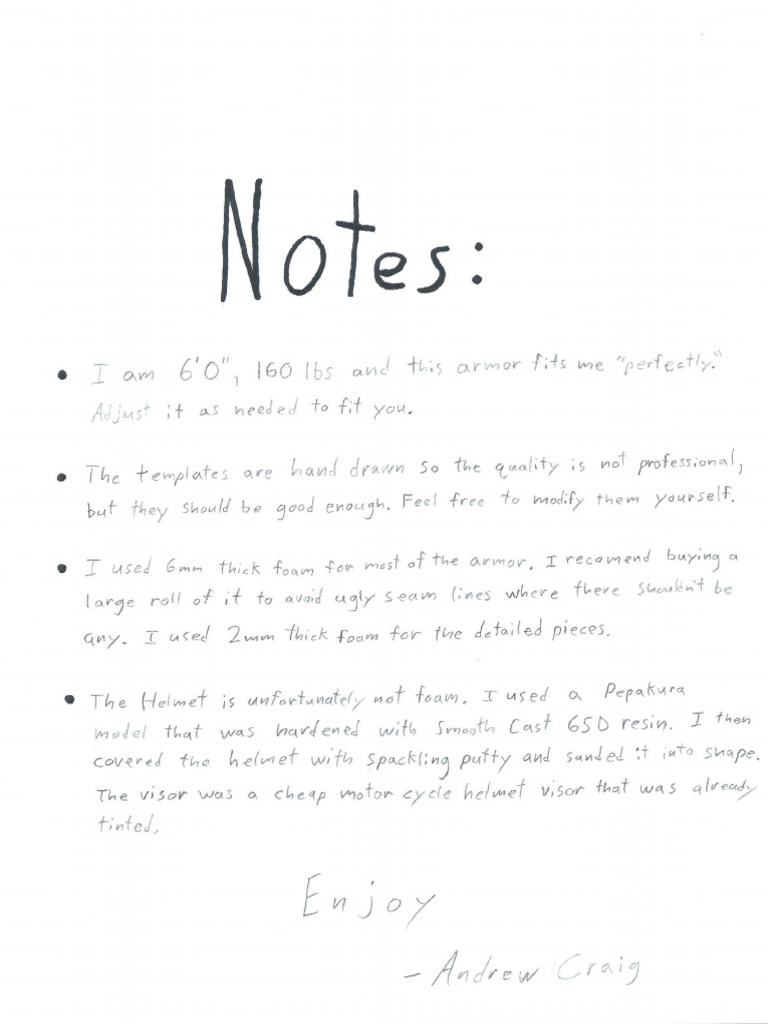 Notes:
• I am 6'0", 160 lbs and this armor fits me "perfectly."
Adjust it as needed to fit you.
• The templates are hand drawn so the quality is not professional,
but they should be good enough. Feel free to modify them yourself.
• I used 6mm thick foam for most of the armor. I recomend buying a
large roll of it to avoid ugly seam lines where there shouldn't be
any. I used 2mm thick foam for the detailed pieces.
• The Helmet is unfortunately not foam. I used a Pepakura
model that was hardened with Smooth Cast 65D resin. I then
covered the helmet with spackling putty and sanded it into shape.
The visor was a cheap motor cycle helmet visor that was already
tinted.
Enjoy
- Andrew Craig